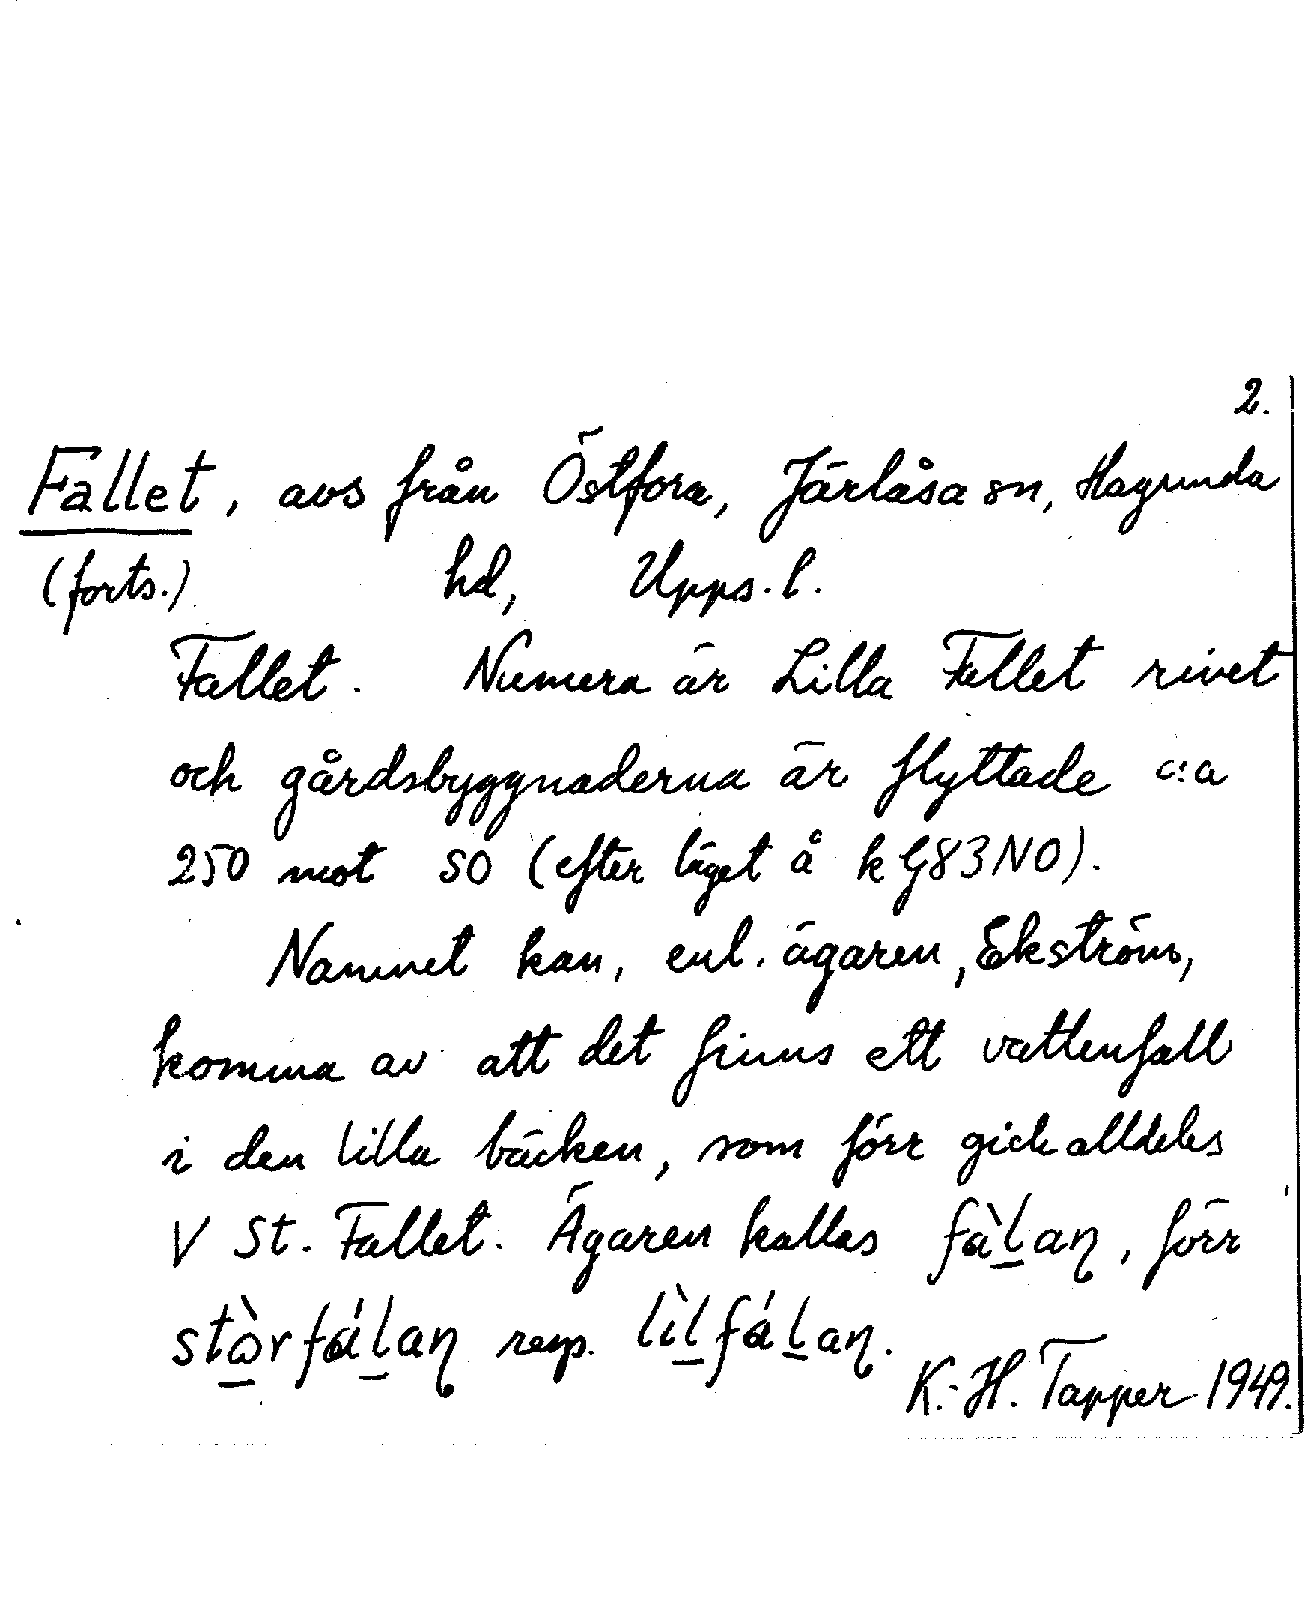 2.
Fallet, avs från Östfora, Järlåsa sn, Hagunda
(forts.) hd, Upps. l.
Fallet. Numera är Lilla Fallet rivet
och gårdsbyggnaderna är flyttade c:a
250 mot SO (efter läget å k G83NO).
Namnet kan, enl. ägaren, Ekström,
komma av att det finns ett vattenfall
i den lilla bäcken, som förr gick alldeles
V St. Fallet. Ägaren kallas fàl̲aɳ, förr
stὼ̲rfál̲aɳ resp. lìl̲fál̲aɳ.
K.-H. Tapper 1949.